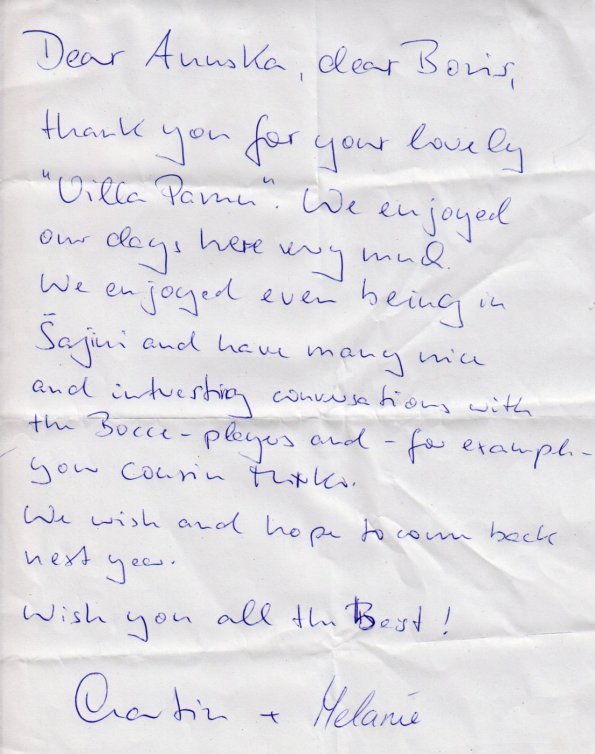 Dear Anuska, dear Boris,
thank you for your lovely
"Villa Pamu". We enjoyed
our days here very much.
We enjoyed even being in
Šajini and have many nice
and interesting conversations with
the Bocce-players and - for example -
your cousin
We wish and hope to come back
next year.
Wish you all the Best!
+ Melanie